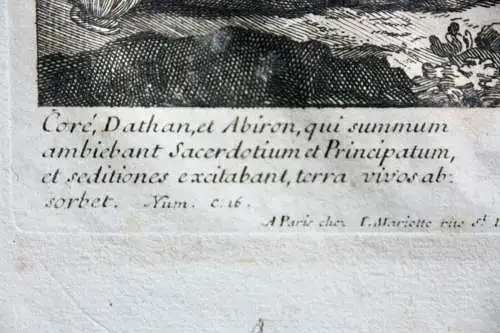 Coré, Dathan, et Abiron, qui summum
ambiebant Sacerdotium et Principatum,
et seditiones excitabant, terra vivos ab-
sorbet. Num. c. 16.
A Paris chez Mariette rue St.
A